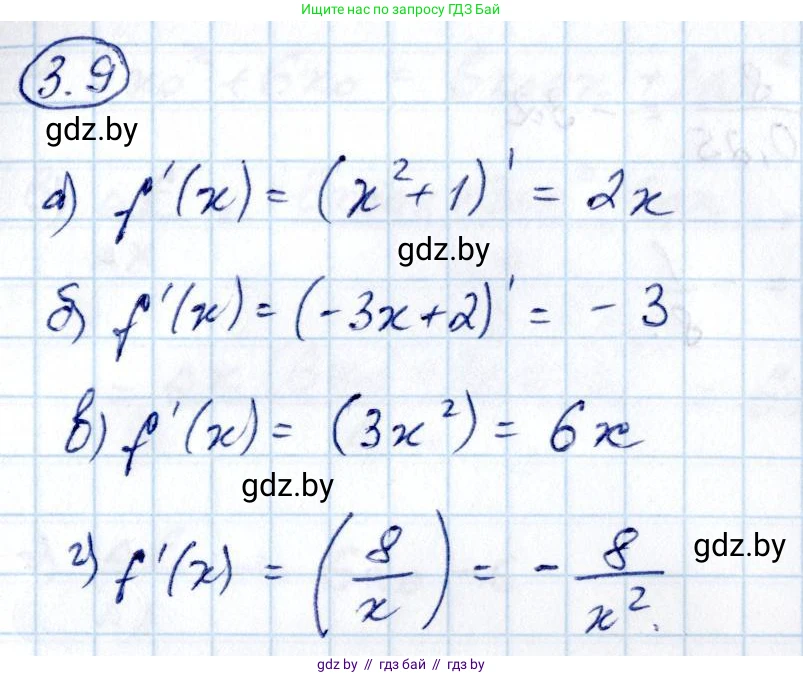 Ищите нас по запросу ГДЗ Бай
3.9
gdz.by
а) f'(x) = (x²+1)' = 2x
gdz.by
б) f'(x) = (-3x+2)' = -3
в) f'(x) = (3x²) = 6x
gdz.by
г) f'(x) = (8/x) = - 8/x².
gdz.by
gdz.by // гдз бай // гдз by